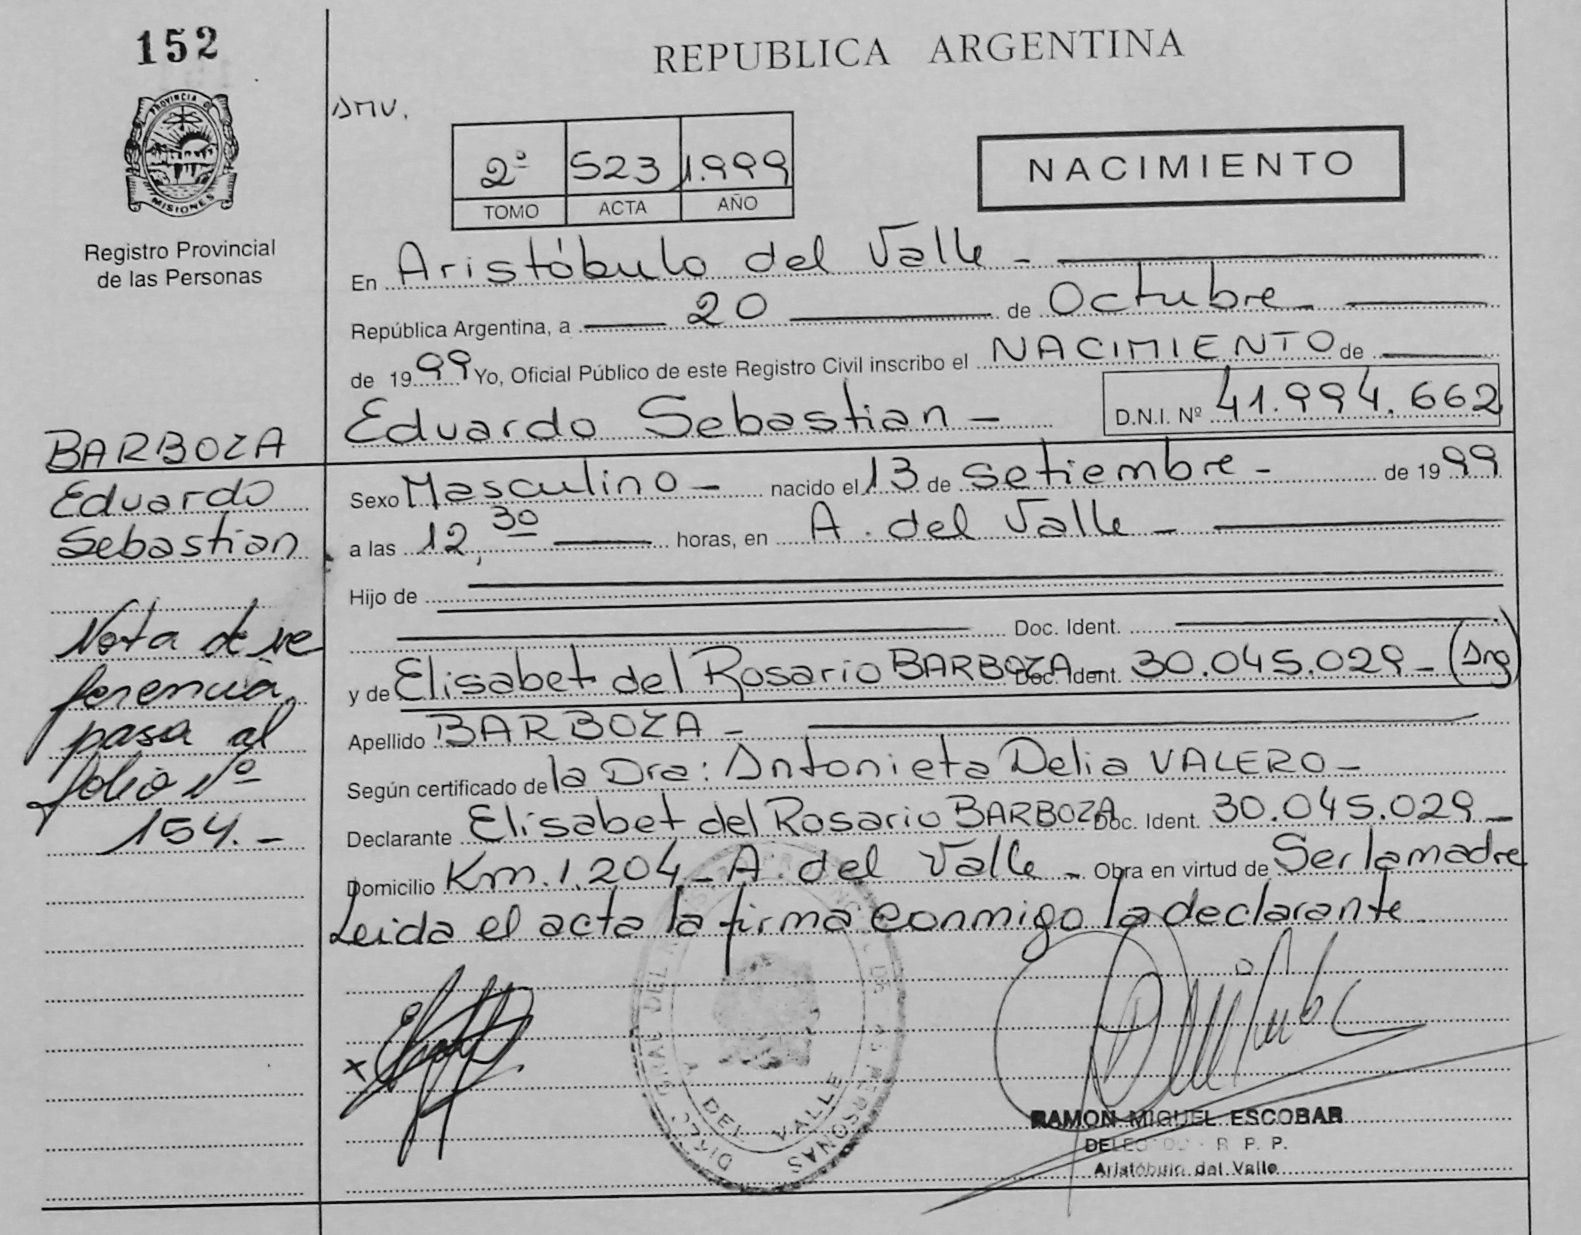 152
PROVINCIA DE
MISIONES
Registro Provincial
de las Personas
BARBOZA
Eduardo
Sebastian
Nota de re
ferencia
pasa al
folio Nº
154.-
REPUBLICA ARGENTINA
2º 523 1.999
TOMO ACTA AÑO
NACIMIENTO
En Aristóbulo del Valle -
República Argentina, a 20 de Octubre
de 1999 Yo, Oficial Público de este Registro Civil inscribo el NACIMIENTO de
Eduardo Sebastian - D.N.I. Nº 41.994.662
Sexo Masculino - nacido el 13 de Setiembre - de 1999
a las 12,30 horas, en A. del Valle -
Hijo de
Doc. Ident.
y de Elisabet del Rosario BARBOZA Doc. Ident. 30.045.029 - (Arg)
Apellido BARBOZA -
Según certificado de la Dra: Antonieta Delia VALERO -
Declarante Elisabet del Rosario BARBOZA Doc. Ident. 30.045.029 -
Domicilio Km. 1.204 - A. del Valle - Obra en virtud de Ser la madre
Leida el acta la firma conmigo la declarante
A DEL VALLE
RAMON MIGUEL ESCOBAR
R. P. P.
Aristóbulo del Valle